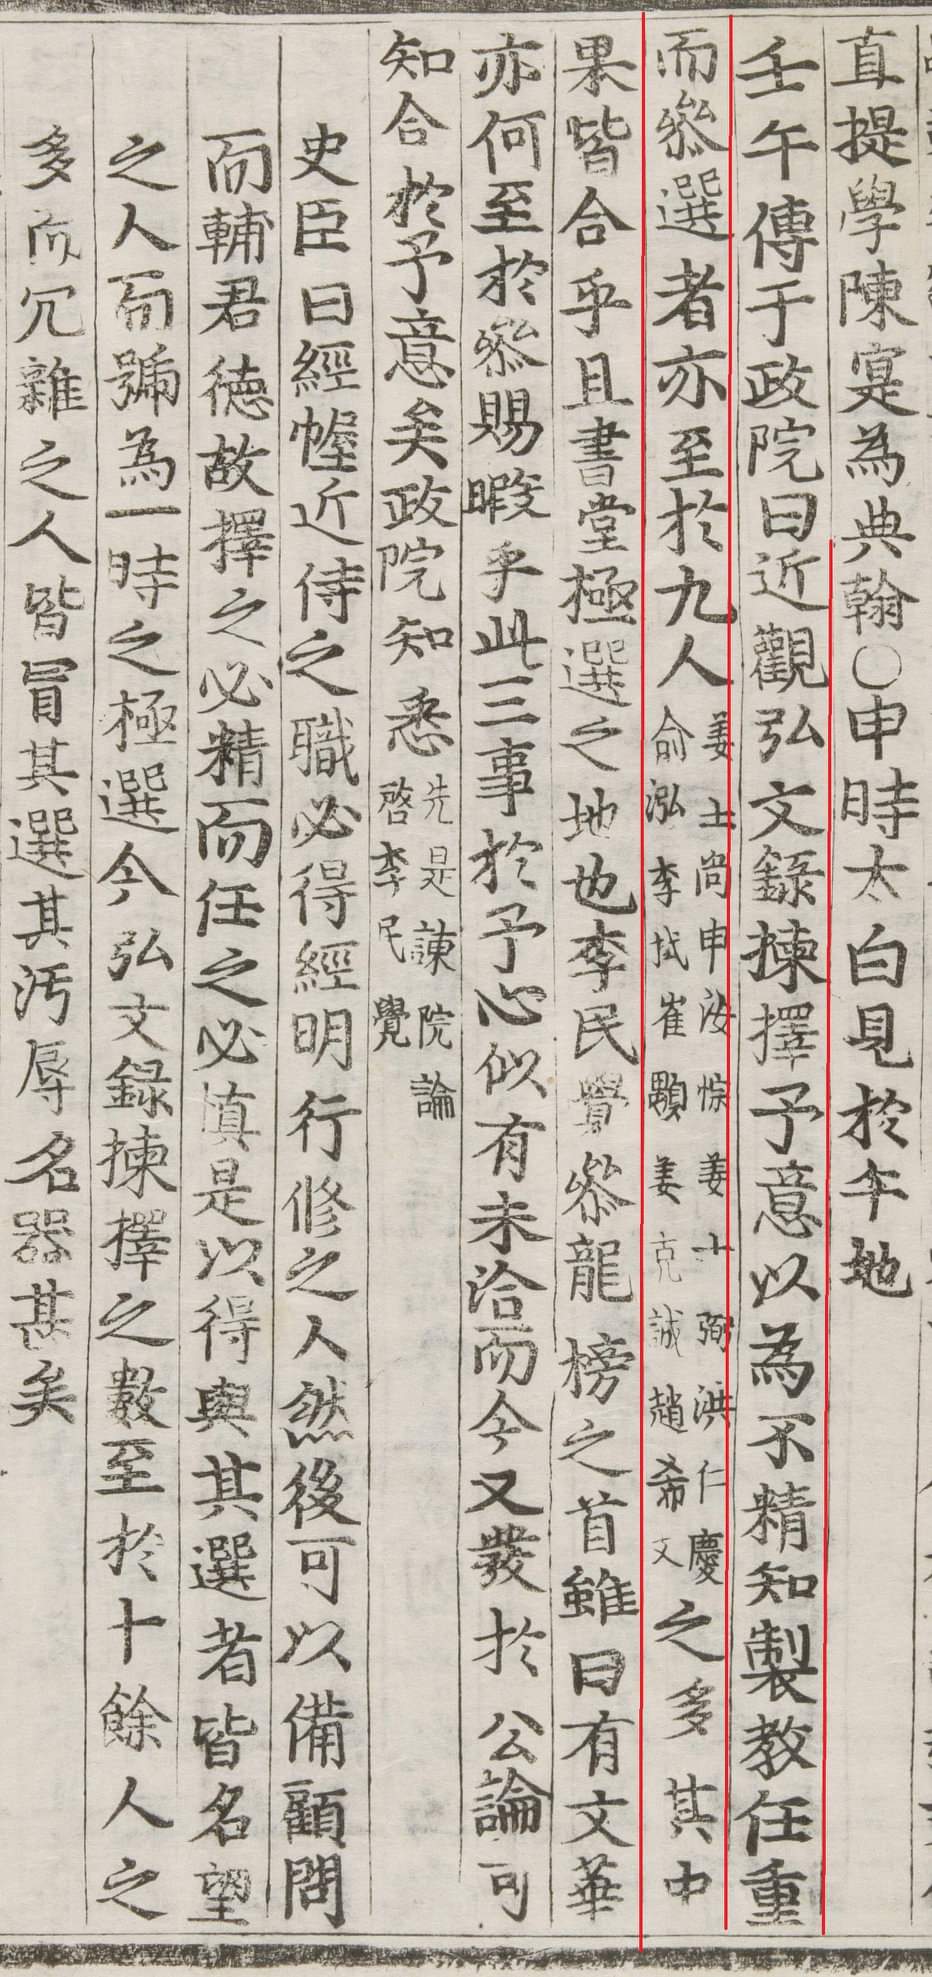 直提學陳寔為典翰○申時太白見於午地
壬午傳于政院曰近觀弘文錄揀擇予意以為不精知製教任重
而叅選者亦至於九人姜士尚申汝悰姜士弼洪仁慶兪泓李拭崔顒姜克誠趙希文之多其中
果皆合乎且書堂極選之地也李民覺叅龍榜之首雖曰有文華
亦何至於叅賜暇乎此三事於予心似有未洽而今又發於公論可
知合於予意矣政院知悉先是諫院論啓李民覺
史臣曰經幄近侍之職必得經明行修之人然後可以備顧問
而輔君德故擇之必精而任之必真是以得與其選者皆名望
之人而號為一時之極選今弘文錄揀擇之數至於十餘人之
多而冗雜之人皆冒其選其汚辱名器甚矣